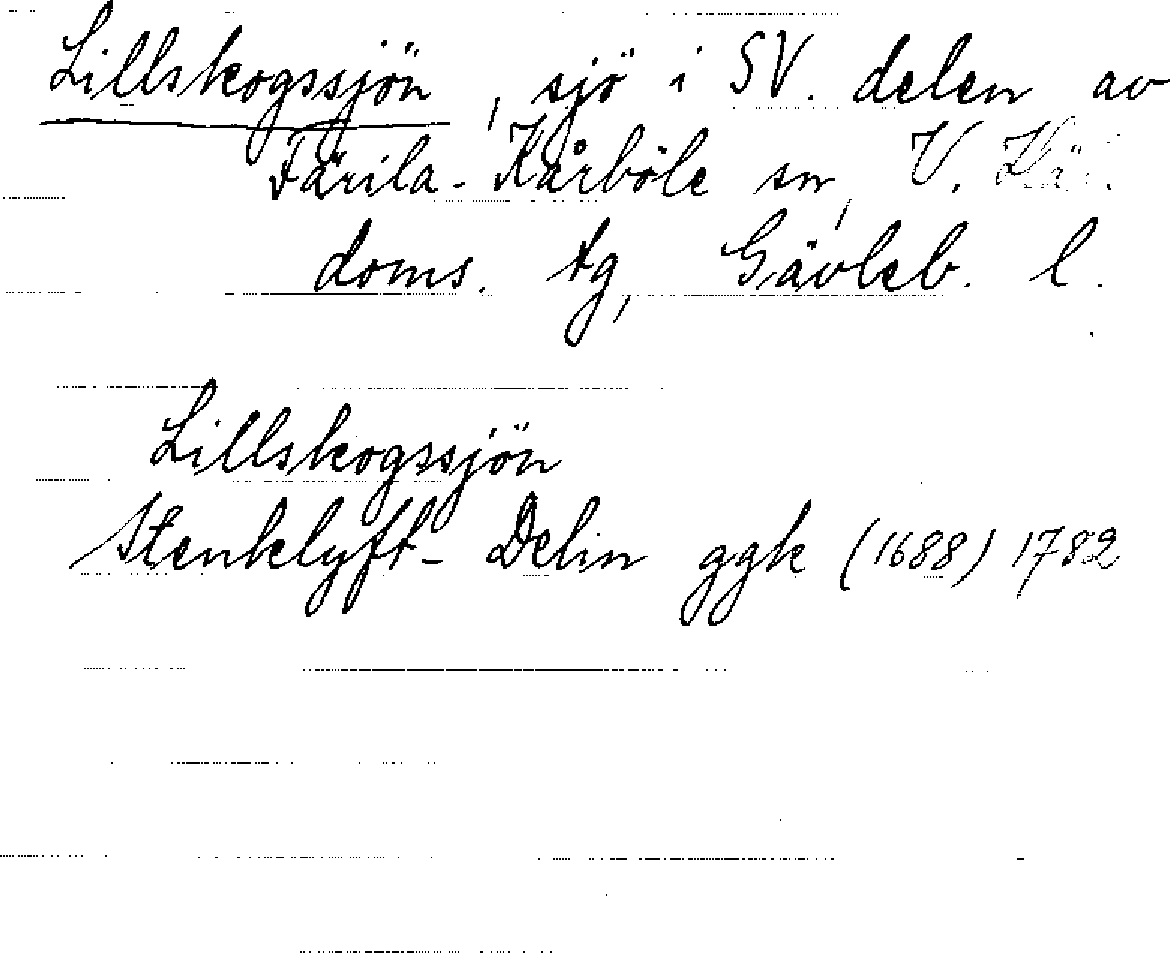 Lillskogssjön, sjö i SV. delen av
Färila-Kårböle sn, V. Häl.
doms. tg, Gävleb. l.
Lillskogssjön
Stenklyft- Delin ggk (1688) 1782